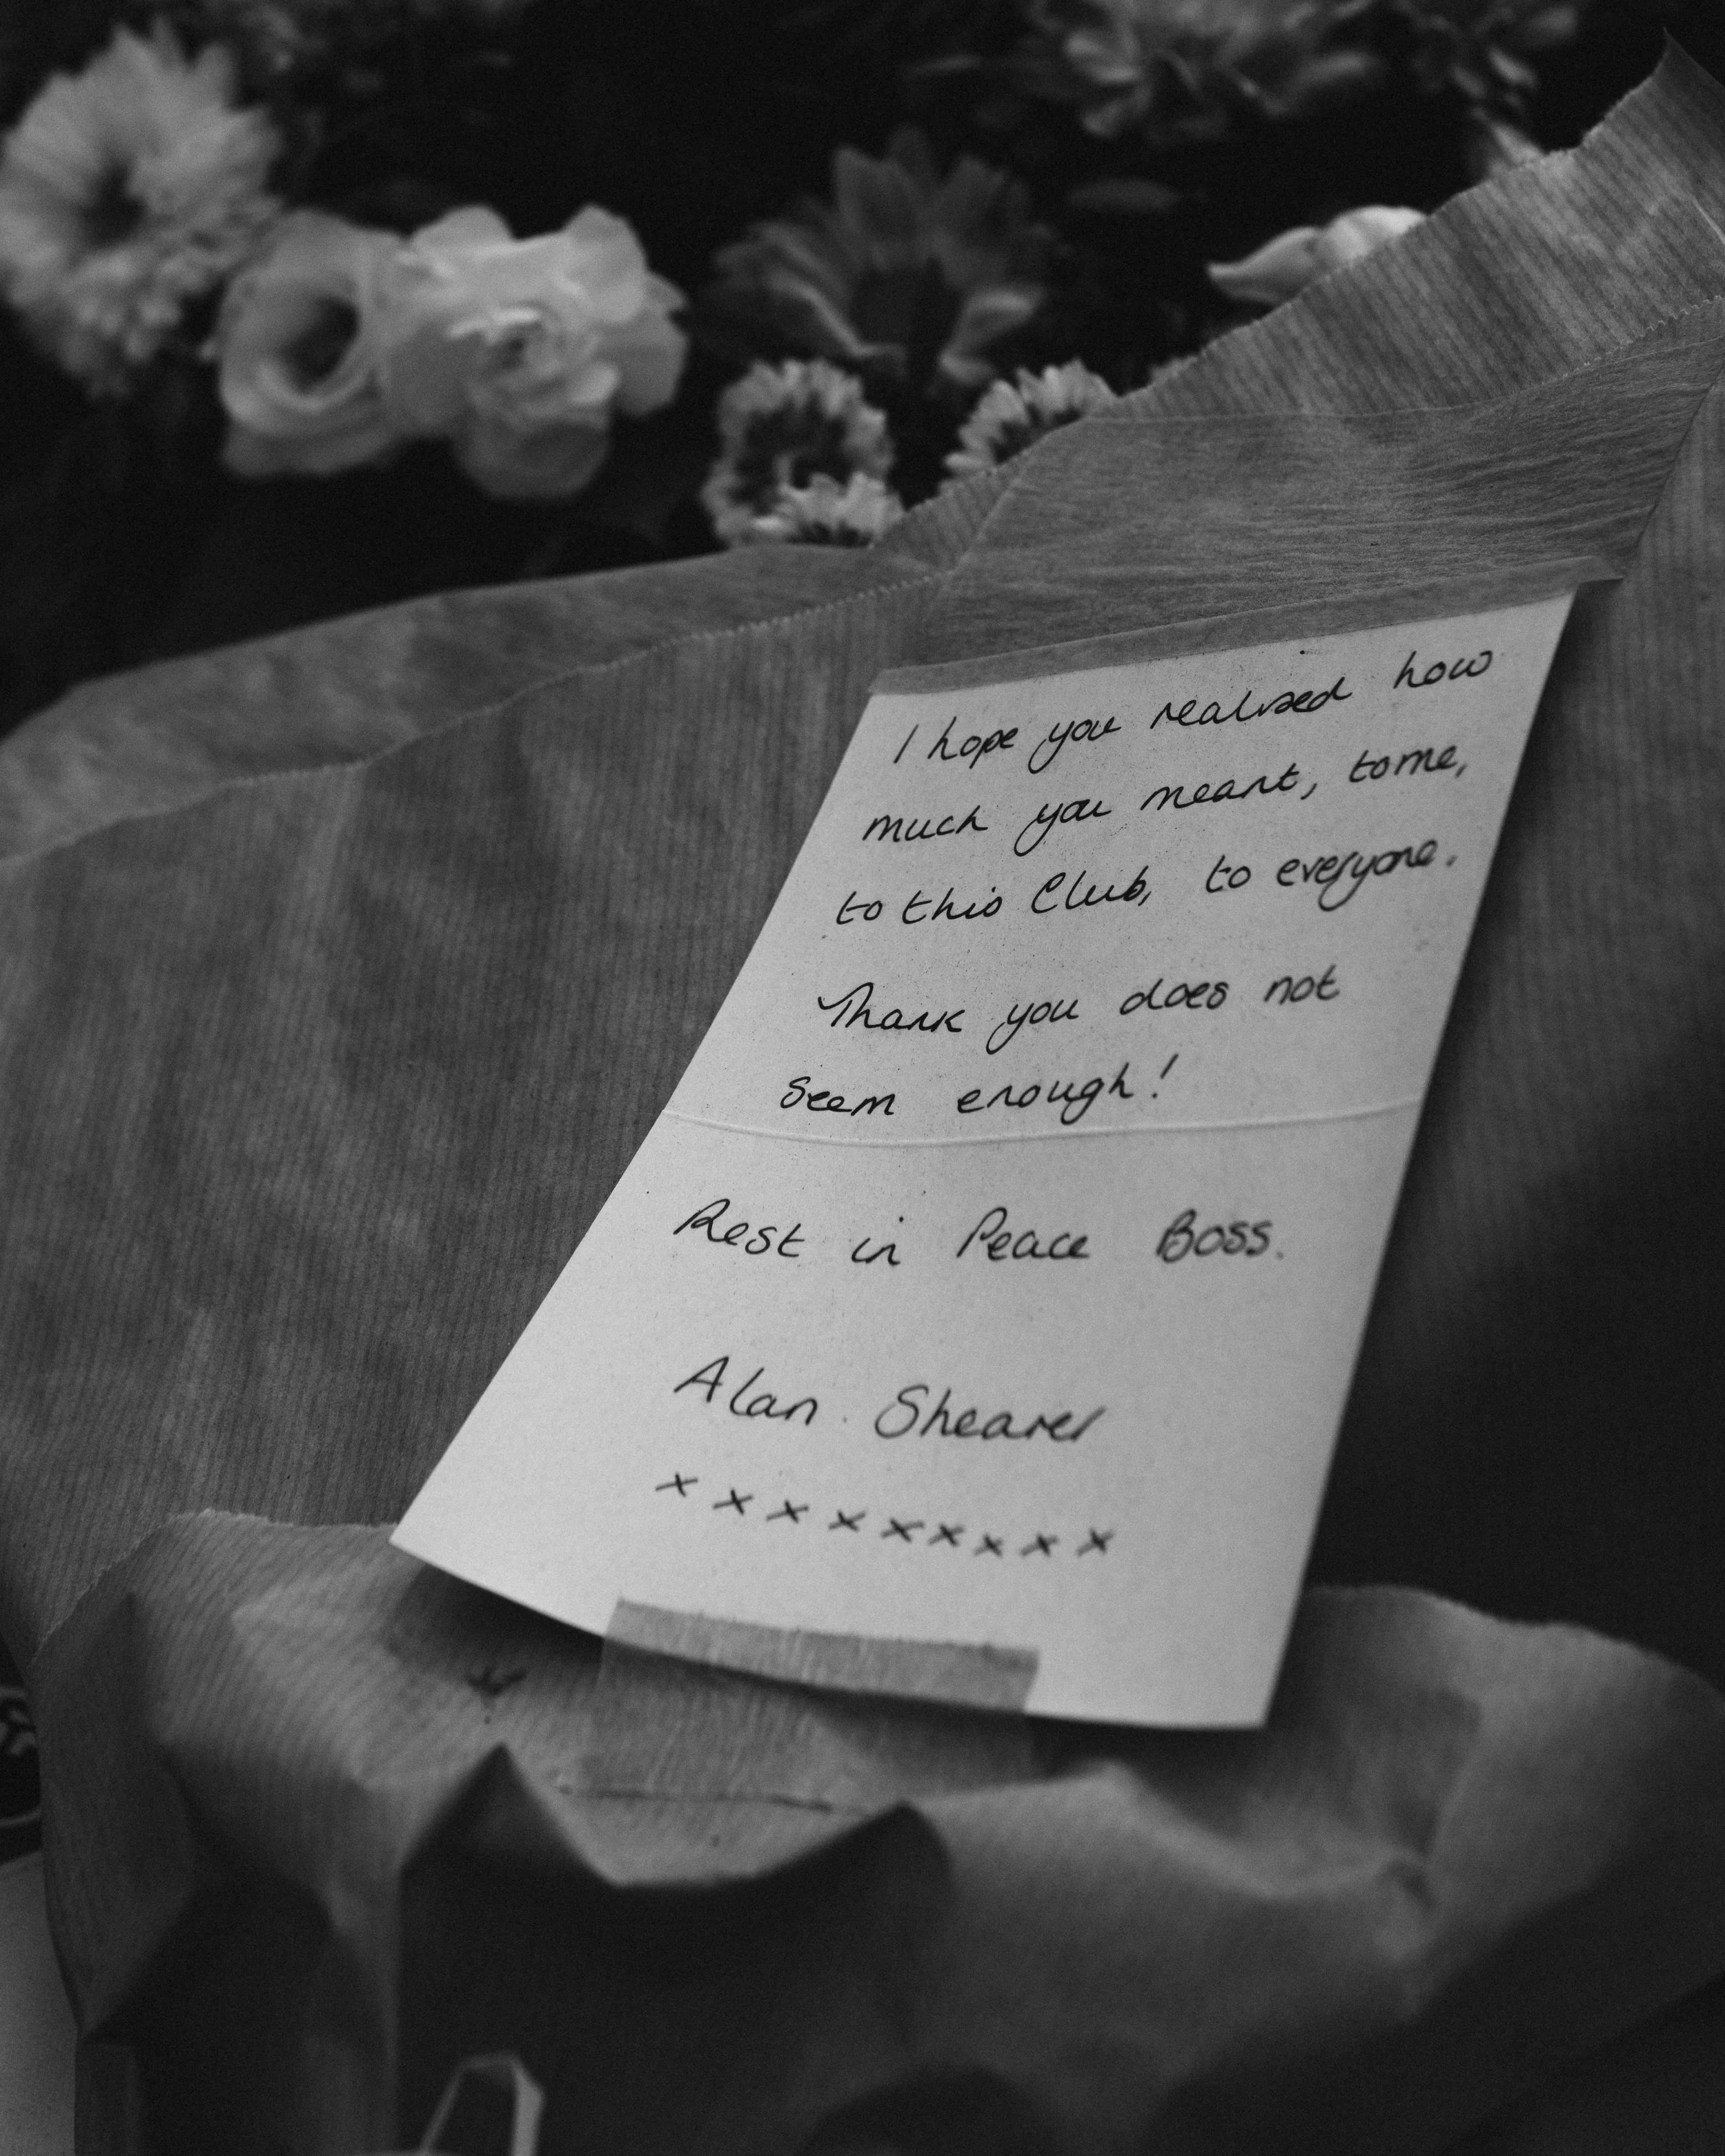 I hope you realised how
much you meant, to me,
to this Club, to everyone.
Thank you does not
Seem enough!
Rest in Peace Boss.
Alan Shearer
x x x x x x x x x